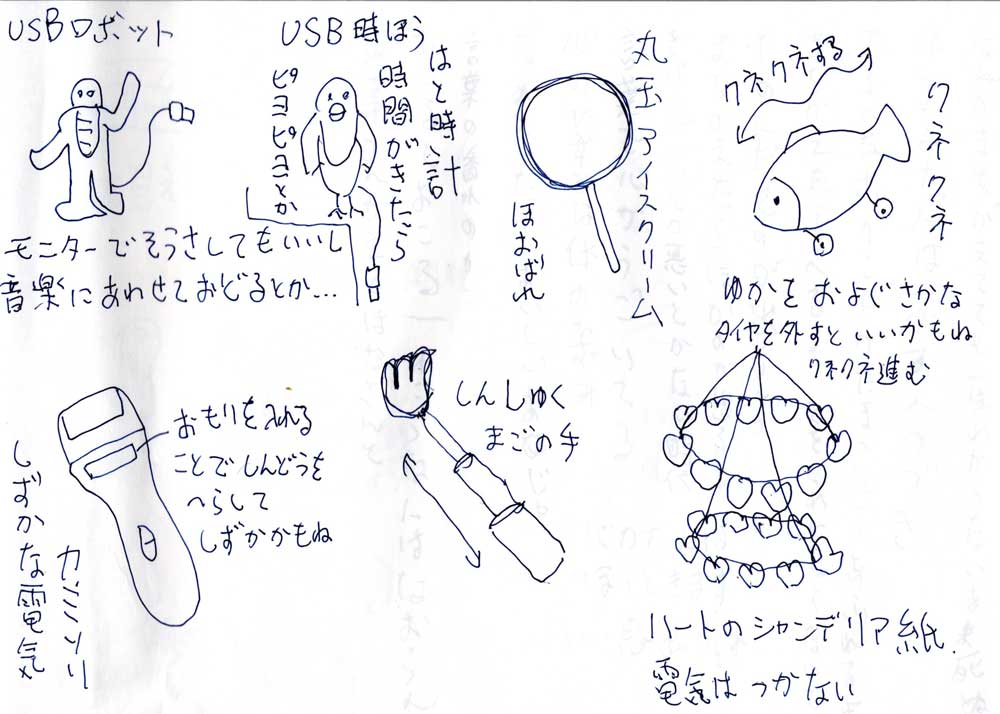 USBロボット
モニターでそうさしてもいいし
音楽にあわせておどるとか…
USB時ほう
はと時計
時間がきたら
ピヨピヨとか
丸玉アイスクリーム
ほおばれ
クネクネする
クネクネ
ゆかをおよぐさかな
タイヤを外すといいかもね
クネクネ進む
しずかな電気
カミソリ
おもりを入れる
ことでしんどうを
へらして
しずかかもね
しんしゅく
まごの手
ハートのシャンデリア紙
電気はつかない